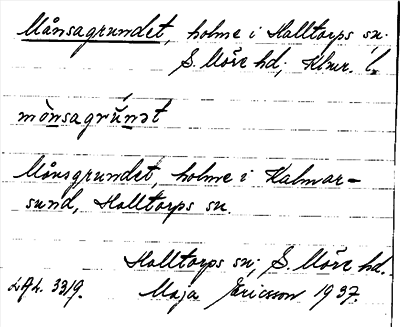 Månsagrundet, holme i Halltorps sn.
S. Möre hd; Klmr. l.
mònsagrŭnət
Månsgrundet, holme i Kalmar-
sund, Halltorps sn.
Halltorps sn; S. Möre hd.
LAL 3319. Maja Ericsson 1937.